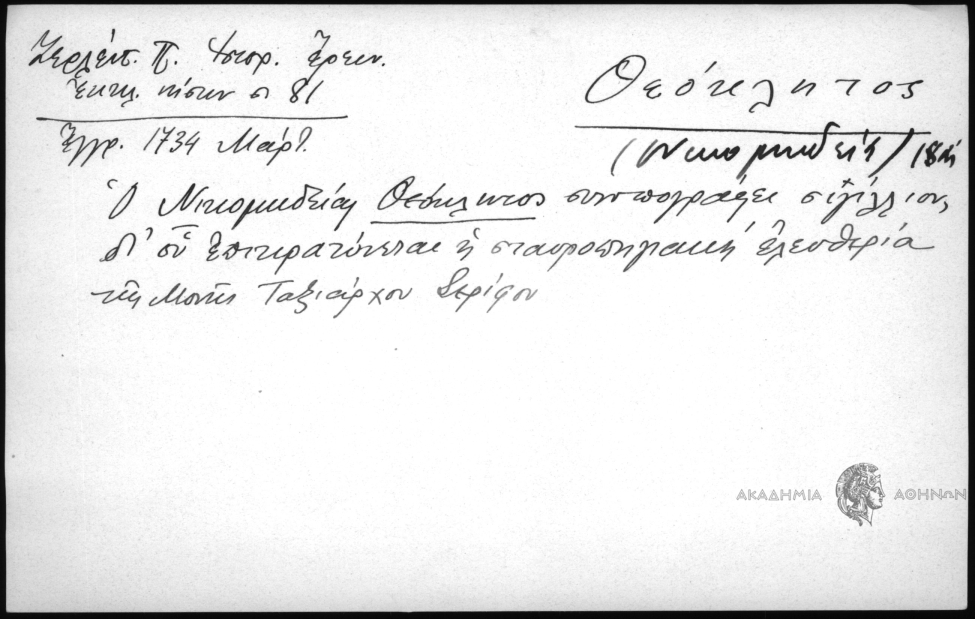 Ζερλέντ. Π. Ἱστορ. Ἔρευν.
Ἐκκλ. νήσων σ 81
Ἔγγρ. 1734 Μάρτ.
Θεόκλητος
(Νικομηδείας) 18
Ὁ Νικομηδείας Θεόκλητος συνυπογράφει σιγίλλιον,
δι' οὗ ἐπικρατύνεται ἡ σταυροπηγιακή ἐλευθερία
τῆς Μονῆς Ταξιάρχου Σερίφου
ΑΚΑΔΗΜΙΑ ΑΘΗΝΩΝ